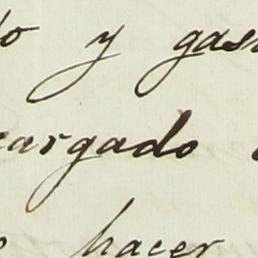 to y gas
cargado
hacer